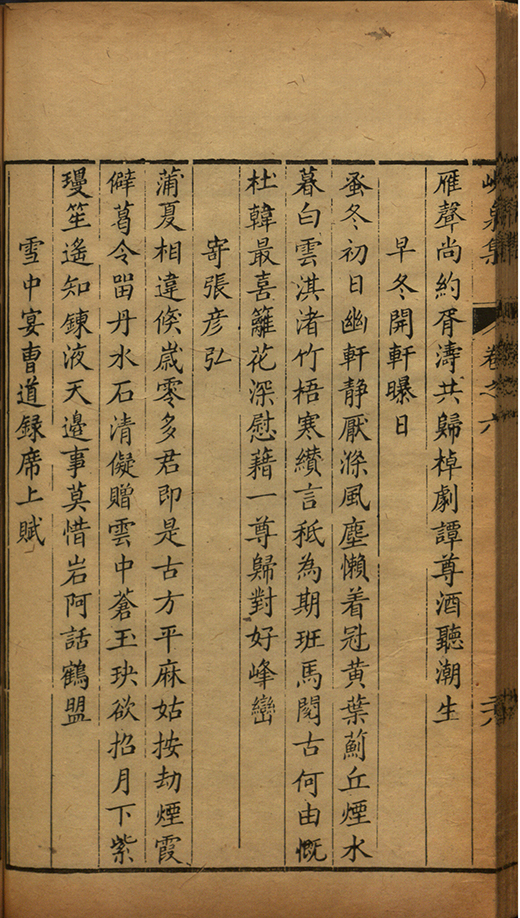 峴泉集 卷之六
雁聲尚約胥濤共歸棹劇譚尊酒聽潮生
早冬開軒曝日
蚤冬初日幽軒静厭滌風塵懶着冠黄葉薊丘煙水
暮白雲淇渚竹梧寒纘言秪為期班馬閱古何由慨
杜韓最喜籬花深慰藉一尊歸對好峰巒
寄張彦弘
蒲夏相違倐歳零多君即是古方平麻姑按劫煙霞
僻葛令畱丹水石清儗贈雲中蒼玉玦欲招月下紫
璮笙遙知鍊液天邉事莫惜岩阿話鶴盟
雪中宴曺道録席上賦